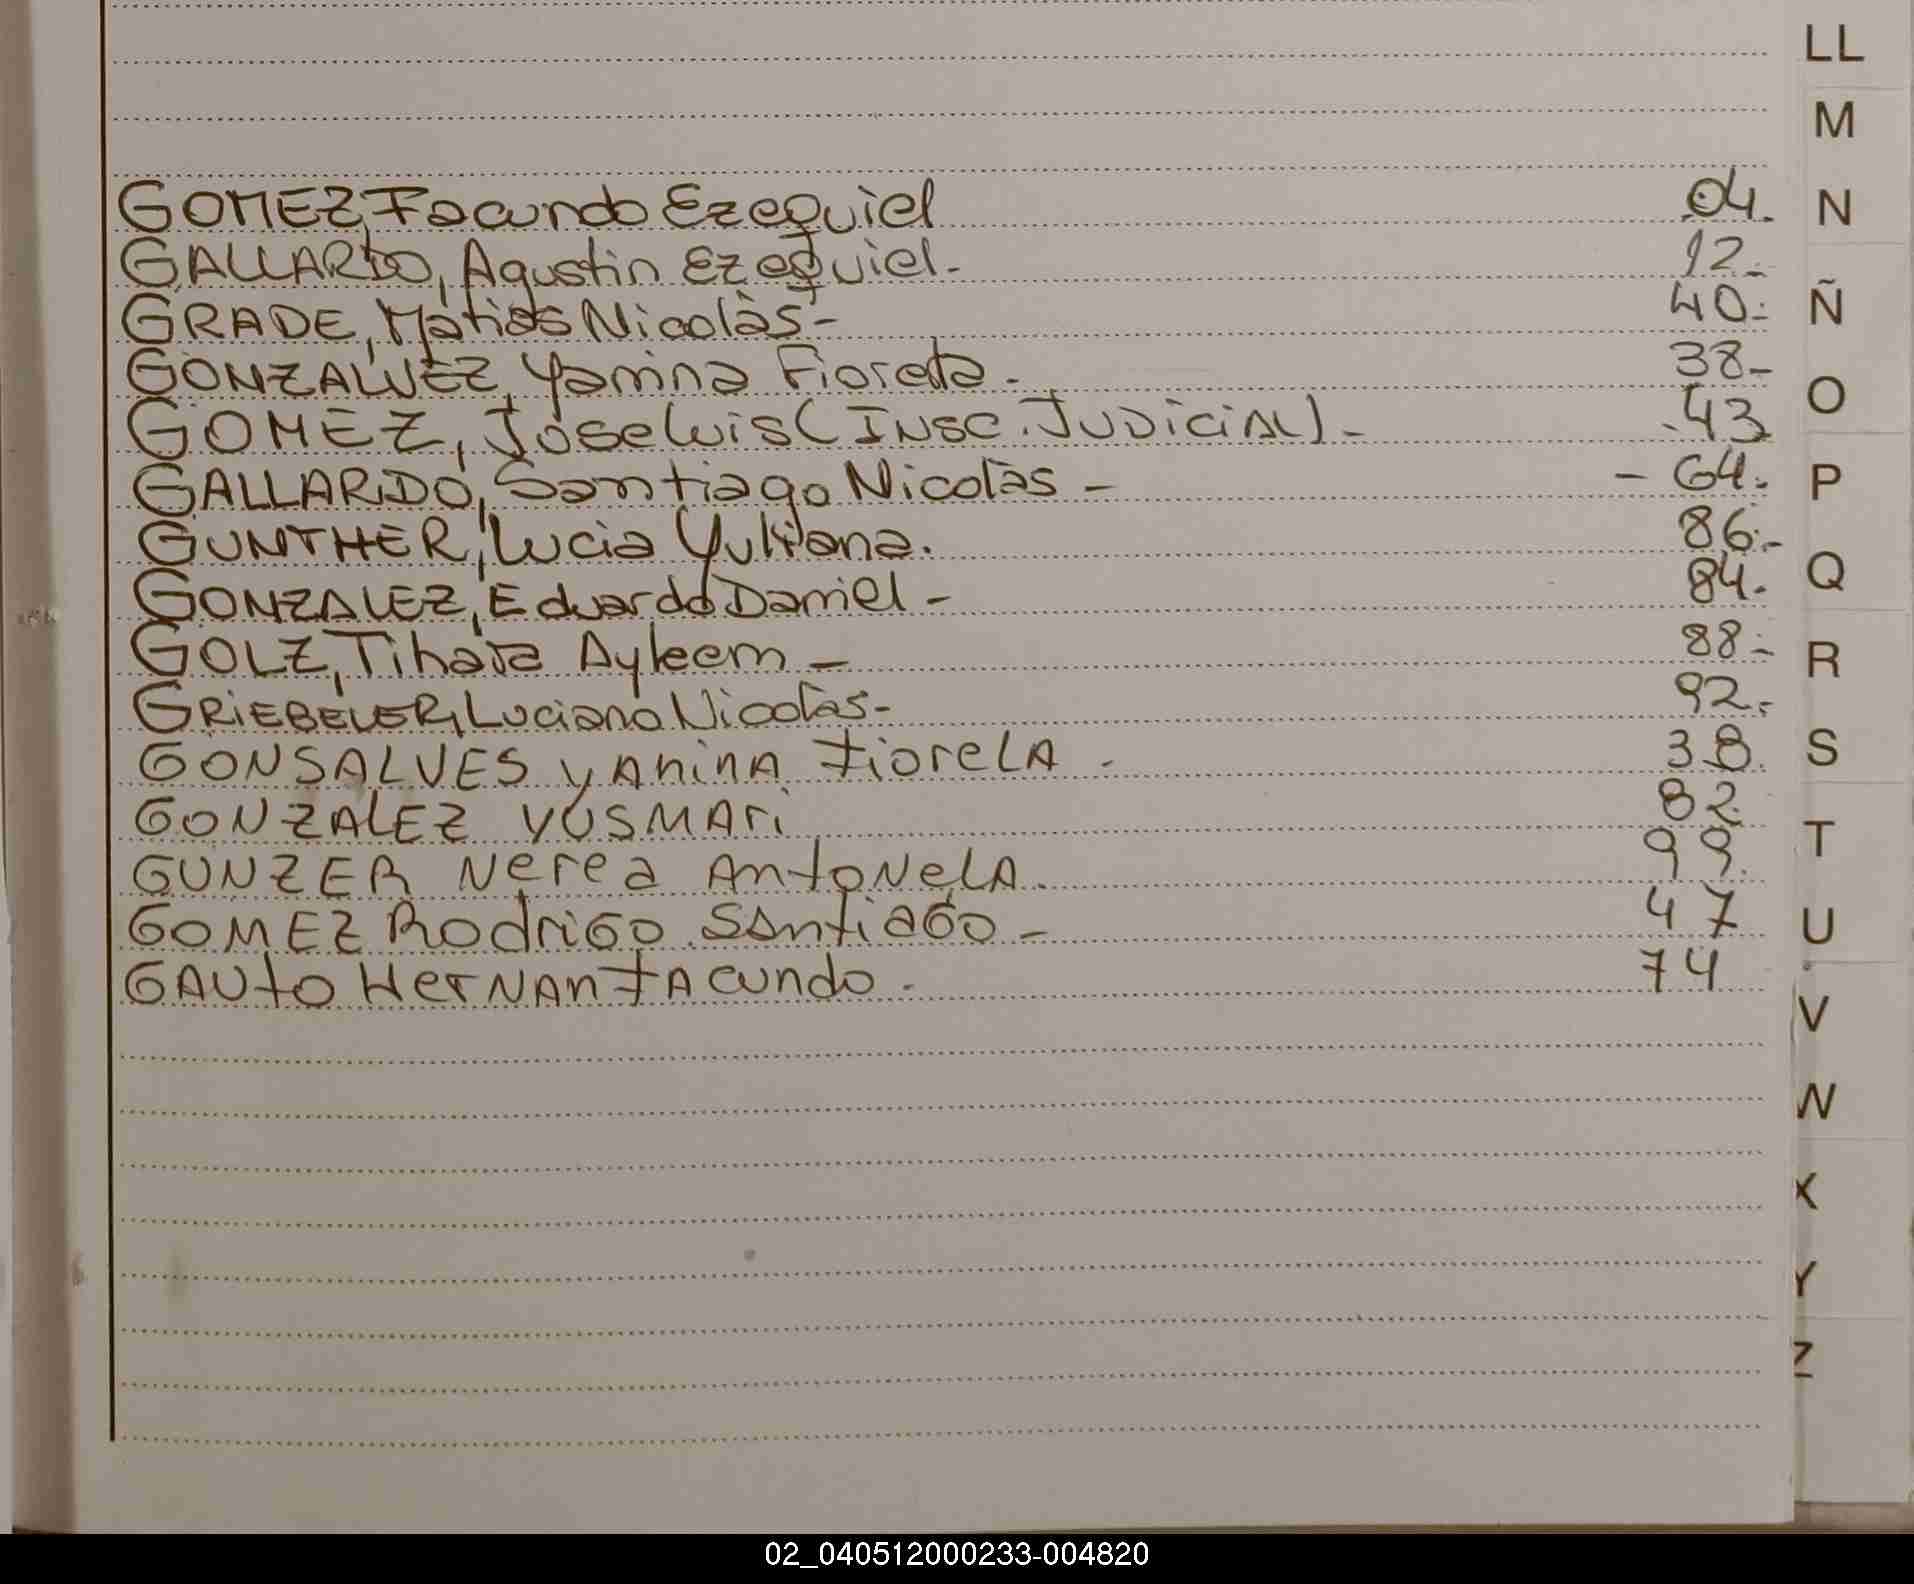 GOMEZ, Facundo Ezequiel 04.
GALLARDO, Agustin Ezequiel.- 12.-
GRADE, Matias Nicolàs- 40.-
GONZALVEZ, Yanina Fiorela.- 38-
GOMEZ, Jose Luis (INSC. JUDICIAL).- 43
GALLARDO, Santiago Nicolàs - - 64.
GUNTHER, Lucia Yuliana. 86.-
GONZALEZ, Eduardo Daniel - 84.
GOLZ, Tihara Ayleem - 88.-
GRIEBELER, Luciano Nicolàs- 92.-
GONSALVES yAninA FiorelA . 38.
GONZALEZ YUSMARi 82.
GUNZER Nerea AntoNelA. 99.
GOMEZ RodriGo SAntiaGo - 47
GAUto HerNAn FAcundo . 74
LL
M
N
Ñ
O
P
Q
R
S
T
U
V
W
X
Y
Z
02_040512000233-004820